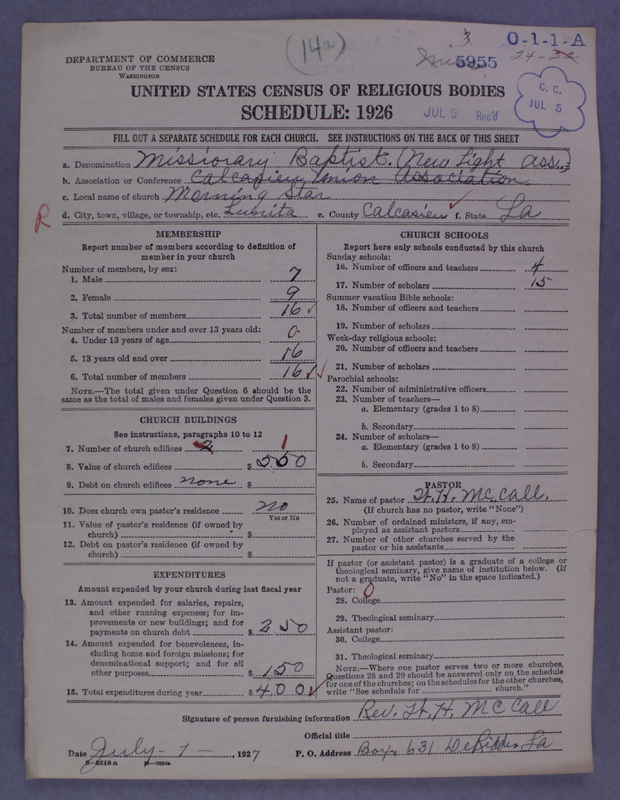 (14a)
3
5955
0-1-1-A
24-
DEPARTMENT OF COMMERCE
BUREAU OF THE CENSUS
WASHINGTON
UNITED STATES CENSUS OF RELIGIOUS BODIES
SCHEDULE: 1926
JUL 5 Rec'd
C. C.
JUL 5
FILL OUT A SEPARATE SCHEDULE FOR EACH CHURCH. SEE INSTRUCTIONS ON THE BACK OF THIS SHEET
a. Denomination Missionary Baptist. (New Light Ass.
b. Association or Conference Calcasieu Union Association
c. Local name of church Morning Star
R
d. City, town, village, or township, etc. Lunita e. County Calcasieu f. State La
MEMBERSHIP
Report number of members according to definition of
member in your church
Number of members, by sex:
1. Male 7
2. Female 9
3. Total number of members 16
Number of members under and over 13 years old:
4. Under 13 years of age 0
5. 13 years old and over 16
6. Total number of members 16
NOTE.—The total given under Question 6 should be the
same as the total of males and females given under Question 3.
CHURCH BUILDINGS
See instructions, paragraphs 10 to 12
7. Number of church edifices 1
8. Value of church edifices $ 550
9. Debt on church edifices none $
10. Does church own pastor's residence no
Yes or No
11. Value of pastor's residence (if owned by
church) $
12. Debt on pastor's residence (if owned by
church) $
EXPENDITURES
Amount expended by your church during last fiscal year
13. Amount expended for salaries, repairs,
and other running expenses; for im-
provements or new buildings; and for
payments on church debt $ 250
14. Amount expended for benevolences, in-
cluding home and foreign missions; for
denominational support; and for all
other purposes $ 150
15. Total expenditures during year $ 400
CHURCH SCHOOLS
Report here only schools conducted by this church
Sunday schools:
16. Number of officers and teachers 4
17. Number of scholars 15
Summer vacation Bible schools:
18. Number of officers and teachers
19. Number of scholars
Week-day religious schools:
20. Number of officers and teachers
21. Number of scholars
Parochial schools:
22. Number of administrative officers
23. Number of teachers—
a. Elementary (grades 1 to 8)
b. Secondary
24. Number of scholars—
a. Elementary (grades 1 to 8)
b. Secondary
PASTOR
25. Name of pastor H. McCall.
(If church has no pastor, write "None")
26. Number of ordained ministers, if any, em-
ployed as assistant pastors
27. Number of other churches served by the
pastor or his assistants
If pastor (or assistant pastor) is a graduate of a college or
theological seminary, give name of institution below. (If
not a graduate, write "No" in the space indicated.)
Pastor: 0
28. College
29. Theological seminary
Assistant pastor:
30. College
31. Theological seminary
NOTE.—Where one pastor serves two or more churches,
Questions 28 and 29 should be answered only on the schedule
for one of the churches; on the schedules for the other churches,
write "See schedule for church."
Signature of person furnishing information Rev. H. McCall
Official title
Date July - 1 -, 1927 P. O. Address Box, 631 DeRidder La
8-5518a